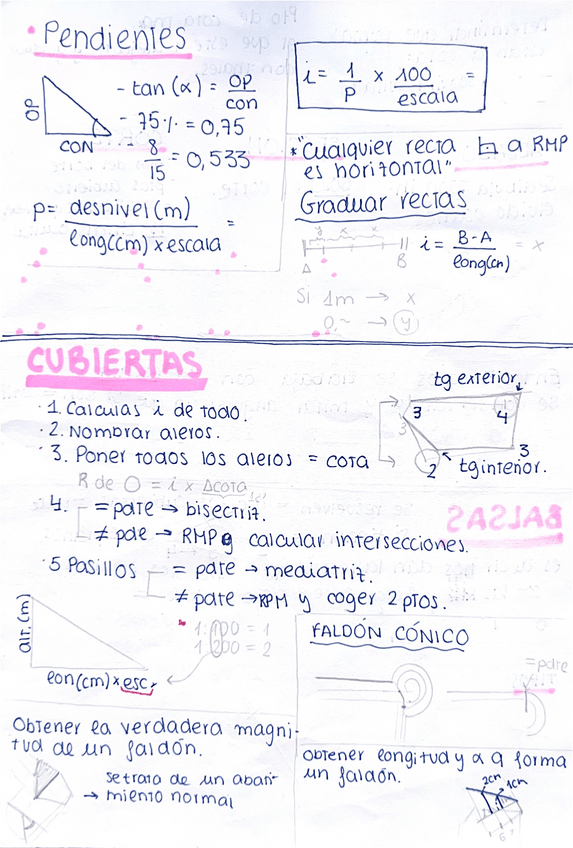 • Pendientes
OP
CON
- tan (α) = OP/con
- 75% = 0,75
- 8/15 = 0,533
p = desnivel (m) / long(cm) x escala =
i = 1/P x 100/escala =
* "Cualquier recta a RMP
es horizontal"
Graduar rectas
A
B
i = B-A / long(cm) = x
Si 1m → x
0,~ → y
CUBIERTAS
· 1. Calculas i de todo.
· 2. Nombrar aleros.
· 3. Poner todos los aleros = cota
R de O = i x Δcota
tg exterior
3
4
3
3
2
tg interior.
4. = pdte → bisectriz.
≠ pdte → RMP y calcular intersecciones.
· 5 Pasillos = pdte → mediatriz.
≠ pdte → RPM y coger 2 ptos.
alt. (m)
lon(cm) x esc.
1:100 = 1
1:200 = 2
FALDÓN CÓNICO
= pdte
Obtener la verdadera magni-
tud de un faldón.
se trata de un abati-
→ miento normal
Obtener longitud y α q forma
un faldón.
2cm
1cm
BALSAS